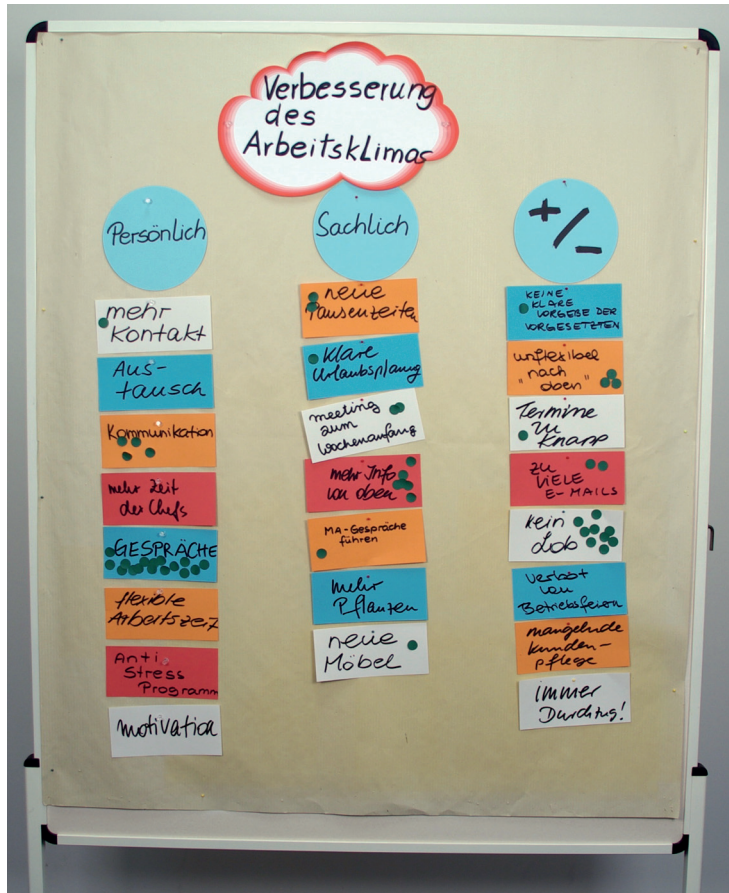 Verbesserung
des
Arbeitsklimas
Persönlich
mehr
Kontakt
Aus-
tausch
Kommunikation
mehr Zeit
des Chefs
GESPRÄCHE
flexible
Arbeitszeit
Anti
Stress
Programm
motivation
Sachlich
neue
Pausenzeiten
klare
Urlaubsplanung
meeting
zum
Wochenanfang
mehr Info
von oben
MA-Gespräche
führen
mehr
Pflanzen
neue
Möbel
+/-
KEINE
KLARE
VORGEBE DER
VORGESETZTEN
unflexibel
nach
"oben"
Termine
zu
Knapp
ZU
VIELE
E-MAILS
kein
Lob
von
Betriebsfeiern
mangelnde
Kunden-
pflege
immer
Durchzug!